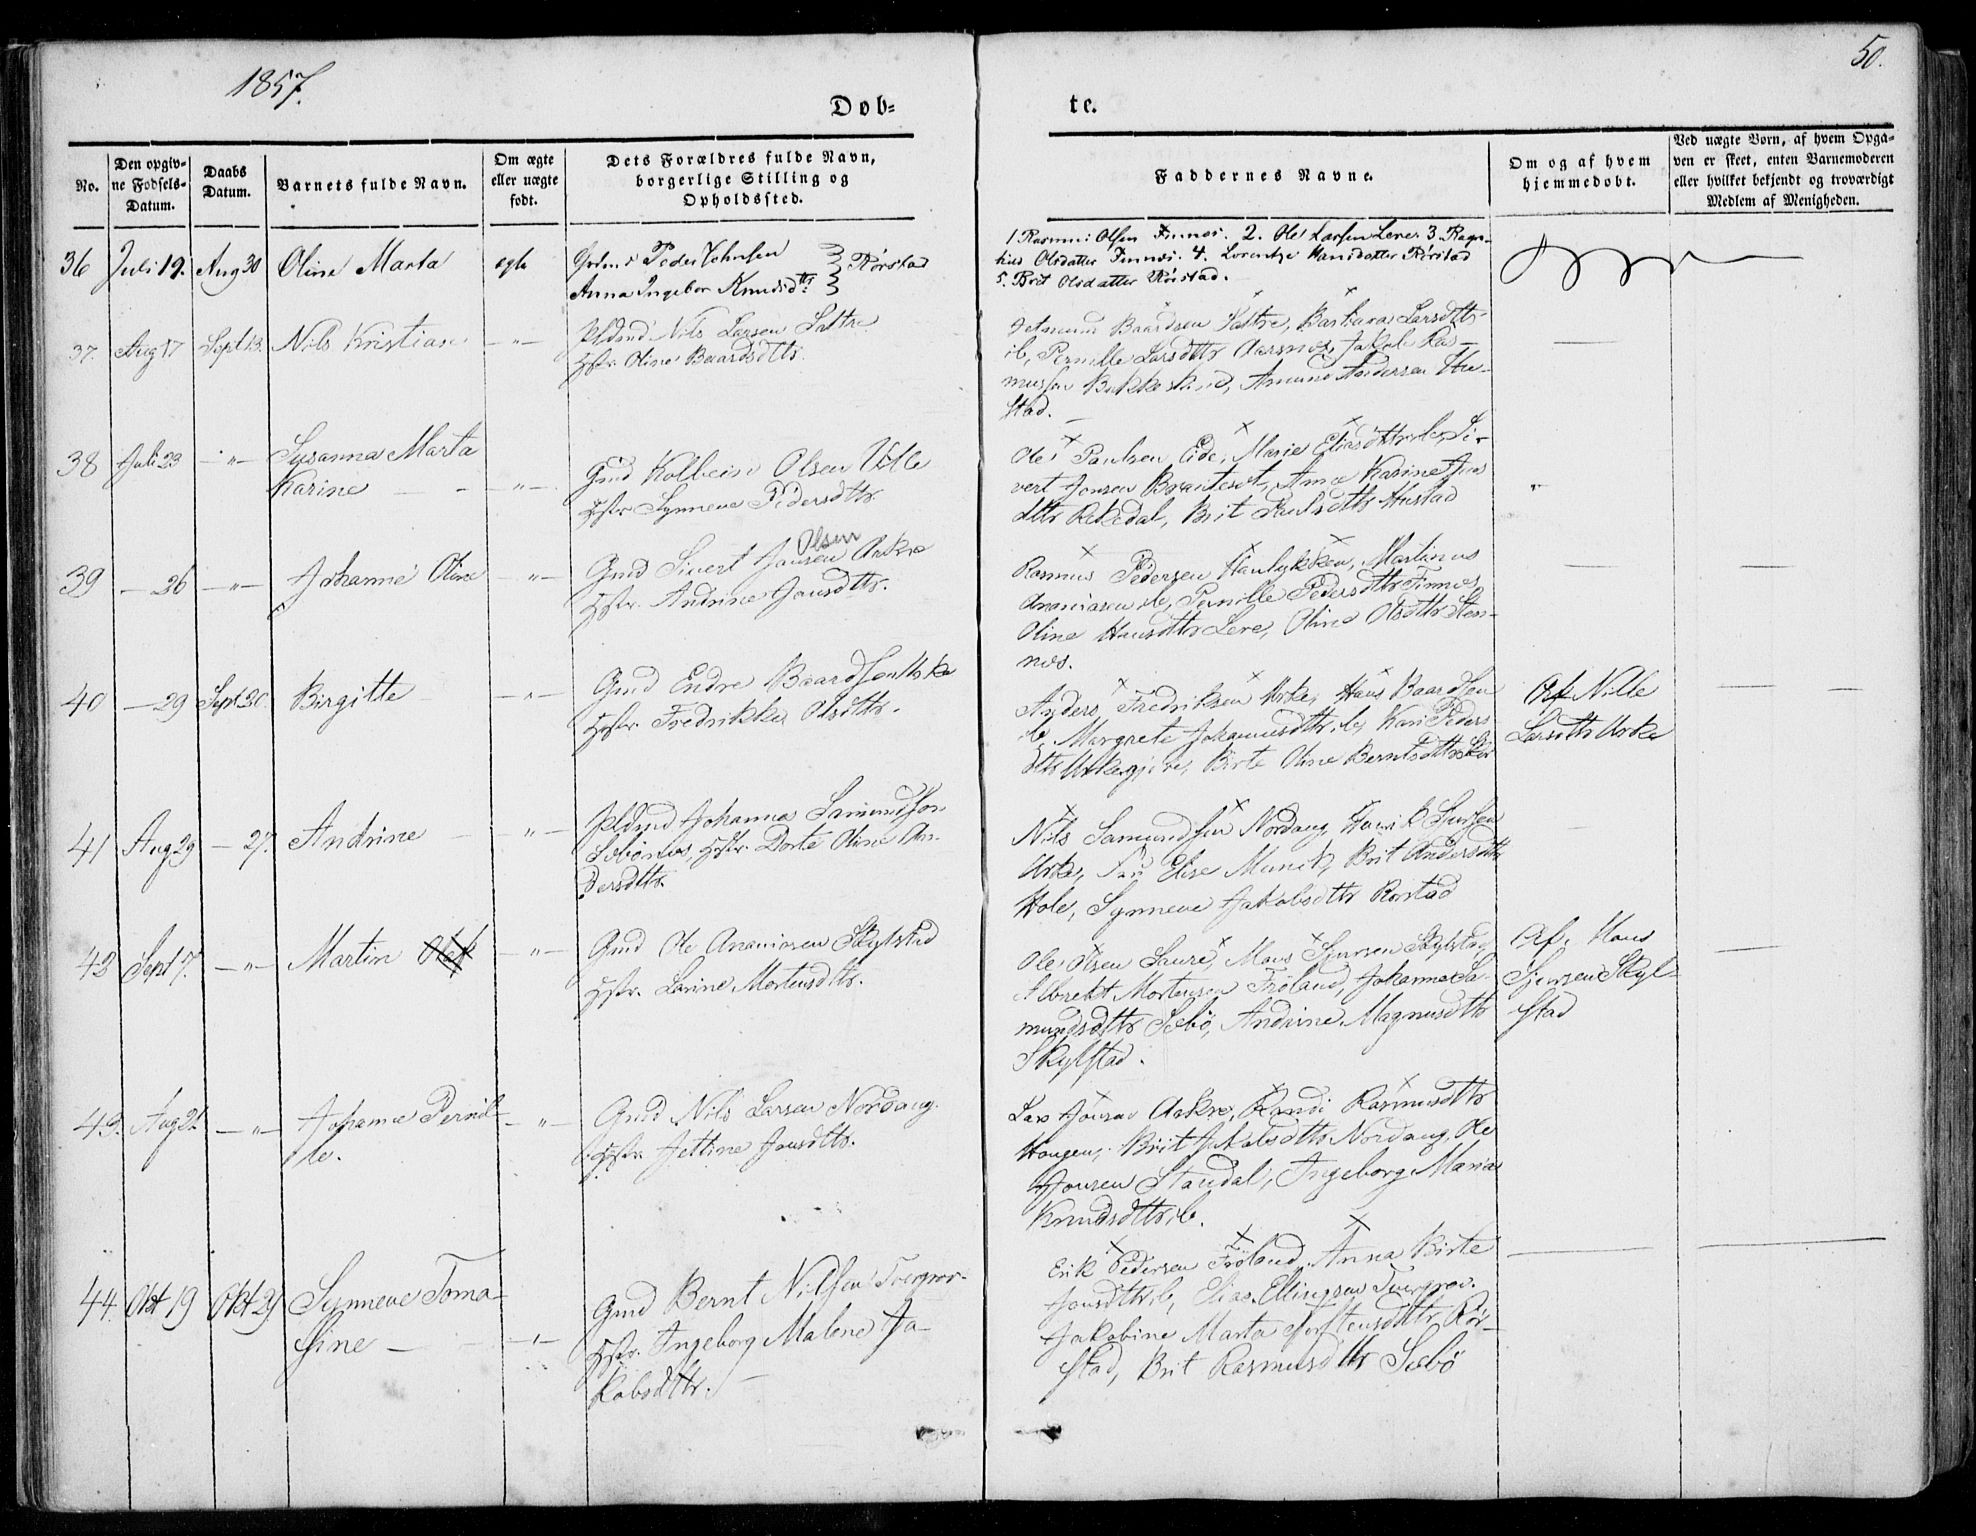 1857.
50.
Døb=
te.
No.
Den opgiv-
ne Fødsels-
Datum.
Daabs
Datum.
Barnets fulde Navn.
Om ægte
eller uægte
født.
Dets Forældres fulde Navn,
borgerlige Stilling og
Opholdssted.
Faddernes Navne.
Om og af hvem
hjemmedøbt.
Ved uægte Børn, af hvem Opga-
ven er skeet, enten Barnemoderen
eller hvilket bekjendt og troværdigt
Medlem af Menigheden.
36 Juli 19. Aug 30 Oline Marta egte
Peder Johnsen
Anna Ingebor Knudsd.tr Rørstad
1. Rasmus Olsen Finnes. 2. Ole Larsen Lere 3. Ragn-
hild Olsdatter Finnes. 4. Lorentze Hansdatter Rørstad
5. Brit Olsdatter Rørstad.
37. Aug 17 Sept 13. Nils Kristian — " —
Pldmd Nils Larsen Sættre
Hstr Oline Baardsdttr.
Baardsen Sættre, Barbara Larsdttr
ib, Pernille Larsdttr Aarsnes, Jakob Ras-
mussen Bakkestrand, Amund Andersen Hu-
stad.
38 Juli 23 — " — Susanna Marta
Karine — " —
Gmd Kolbein Olsen Ville
Hstr Synneve Pedersdttr
Ole Paulsen Eide, Marie Eliasdttr ib, Si-
vert Jonsen Brauteset, Anne Karine Jons
dttr Rekedal, Brit Paulsdttr Hustad
39 — 26 — " — Johanne Oline — " —
Olsen
Gmd Sivert Jonsen Aakre
Hstr. Andrine Jonsdttr.
Rasmus Pedersen Haulykken, Martinus
Ananiasen ib, Pernille Pedersdttr Finnes,
Oline Hansdttr Lere, Oline Olsdttr Sten-
nes.
40 — 29 Sept 20. Birgitte — " —
Gmd Endre Baardsen Urke
Hstr Fredrikke Olsdttr.
Anders Fredriksen Urke, Hans Baardsen
ib, Margrete Johannesdttr ib, Kari Peders
dttr Urkegjere, Birte Oline Berntsdttr Skor
Af Nille
Larsdttr Urke
41 Aug 29 — 27. Andrine — " —
Pldmd Johannes Samundsen
Sæbönes, Hstr. Dorte Oline An-
dersdttr.
Nils Samundsen Nordang, Henrik Sjursen
Urke, Elise Munch, Brit Andersdttr
Hole, Synneve Jakobsdttr Rørstad
42 Sept 7. — " — Martin Olek — " —
Gmd Ole Ananiasen Skylstad
Hstr. Larine Mortensdttr.
Ole Olsen Saure, Mons Sjursen Skylstad,
Albrekt Mortensen Fröland, Johanna Sa-
mundsdttr Sæbö, Andrine Magnusdttr
Skylstad.
Af Mons
Sjursen Skyl-
stad
43. Aug 21 — " — Johanna Pernil-
le. — " —
Gmd Nils Larsen Nordang.
Hstr. Jettine Jonsdttr.
Lars Jonsen Aakre, Randi Rasmusdttr
Haugen, Brit Jakobsdttr Nordang, Ole
Jonsen Standal, Ingeborg Maria
Knudsdttr ib.
44. Okt 19 Okt 29 Synneve Toma-
sine — " —
Gmd Bernt Nilsen Tvergrov-
Hstr. Ingeborg Malene Ja-
kobsdttr. —
Erik Pedersen Fröland, Anna Birte
Jonsdttr ib, Elias Ellingsen Tvergrov.
Jakobine Marta Torstensdttr Rör-
stad, Brit Rasmusdttr Sæbö